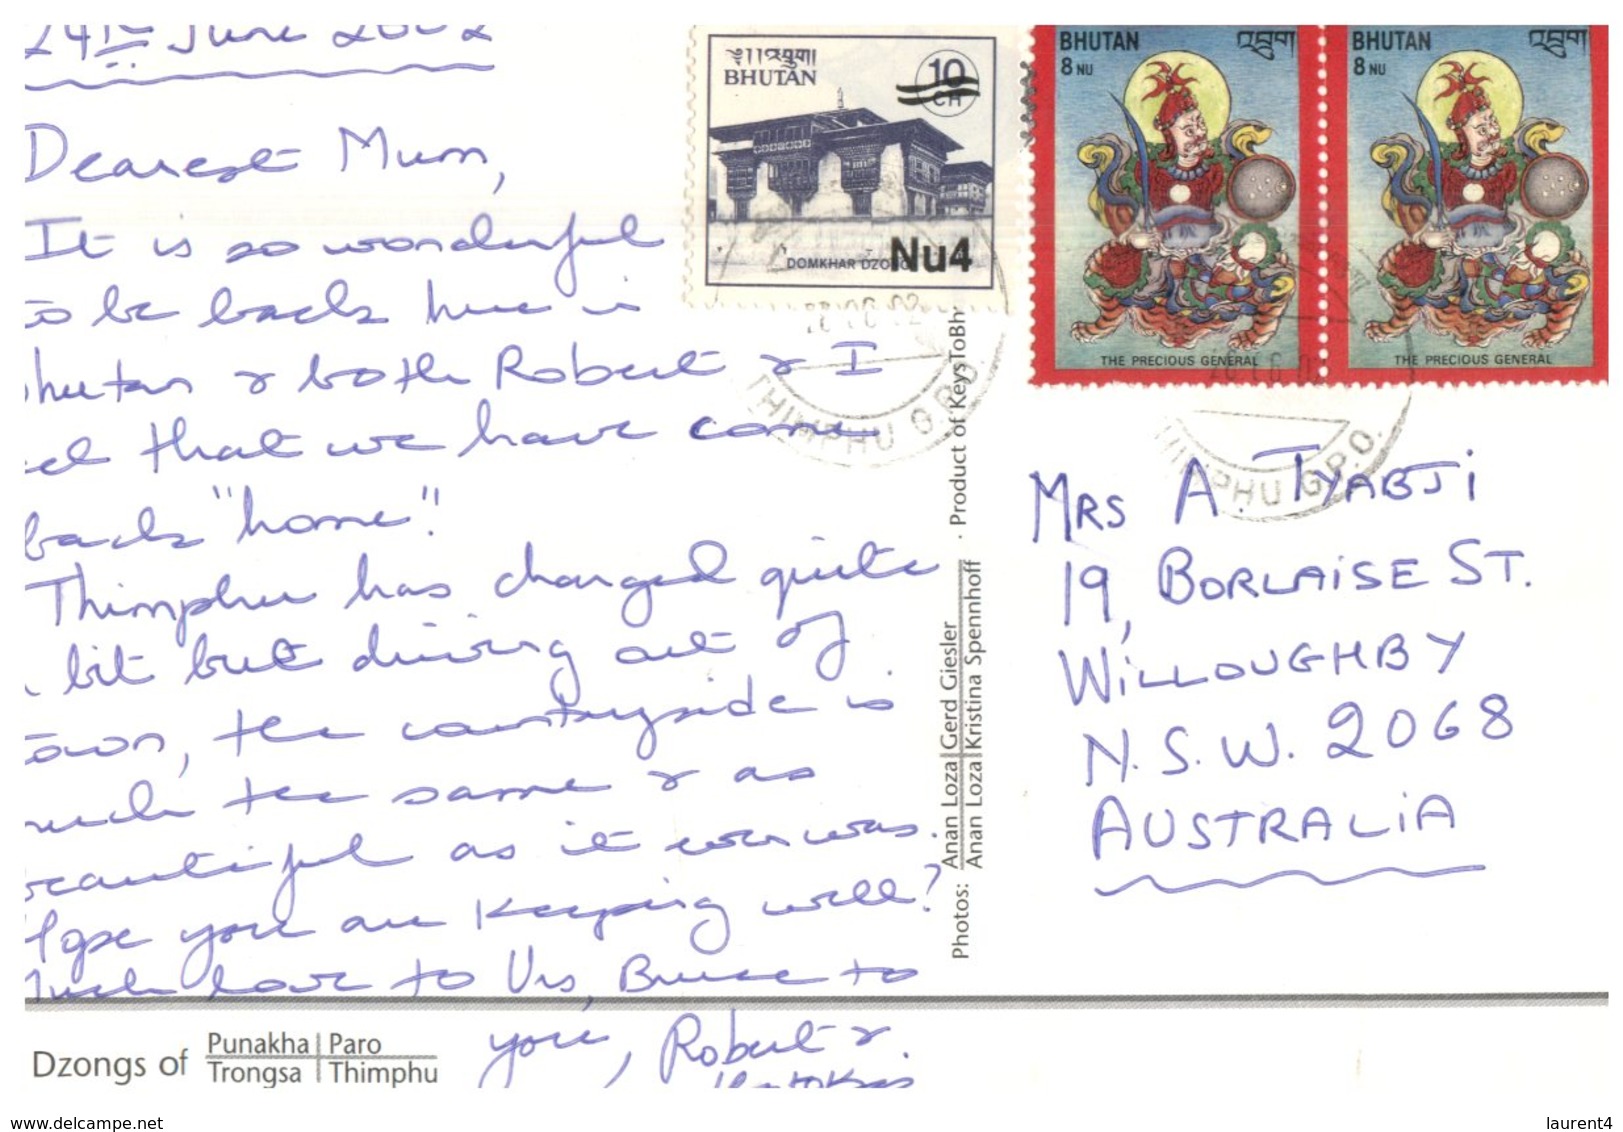 24th June 2002
Dearest Mum,
It is so wonderful
to be back here in
Bhutan & both Robert & I
feel that we have come
back "home"!
Thimphu has changed quite
a bit but driving out of
town, the countryside is
much the same & as
beautiful as it ever was.
Hope you are keeping well?
Much love to Vis, Bruce to
you, Robert &
འབྲུག
BHUTAN
10
CH
DOMKHAR DZONG
Nu4
BHUTAN
8 NU
འབྲུག
THE PRECIOUS GENERAL
BHUTAN
8 NU
འབྲུག
THE PRECIOUS GENERAL
THIMPHU G.P.O.
THIMPHU G.P.O.
MRS A. TYABJI
19, BORLAISE ST.
WILLOUGHBY
N.S.W. 2068
AUSTRALIA
Photos: Anan Loza Gerd Giesler
Anan Loza Kristina Spennhoff · Product of KeysToBh
Dzongs of Punakha Paro
Trongsa Thimphu
www.delcampe.net
laurent4